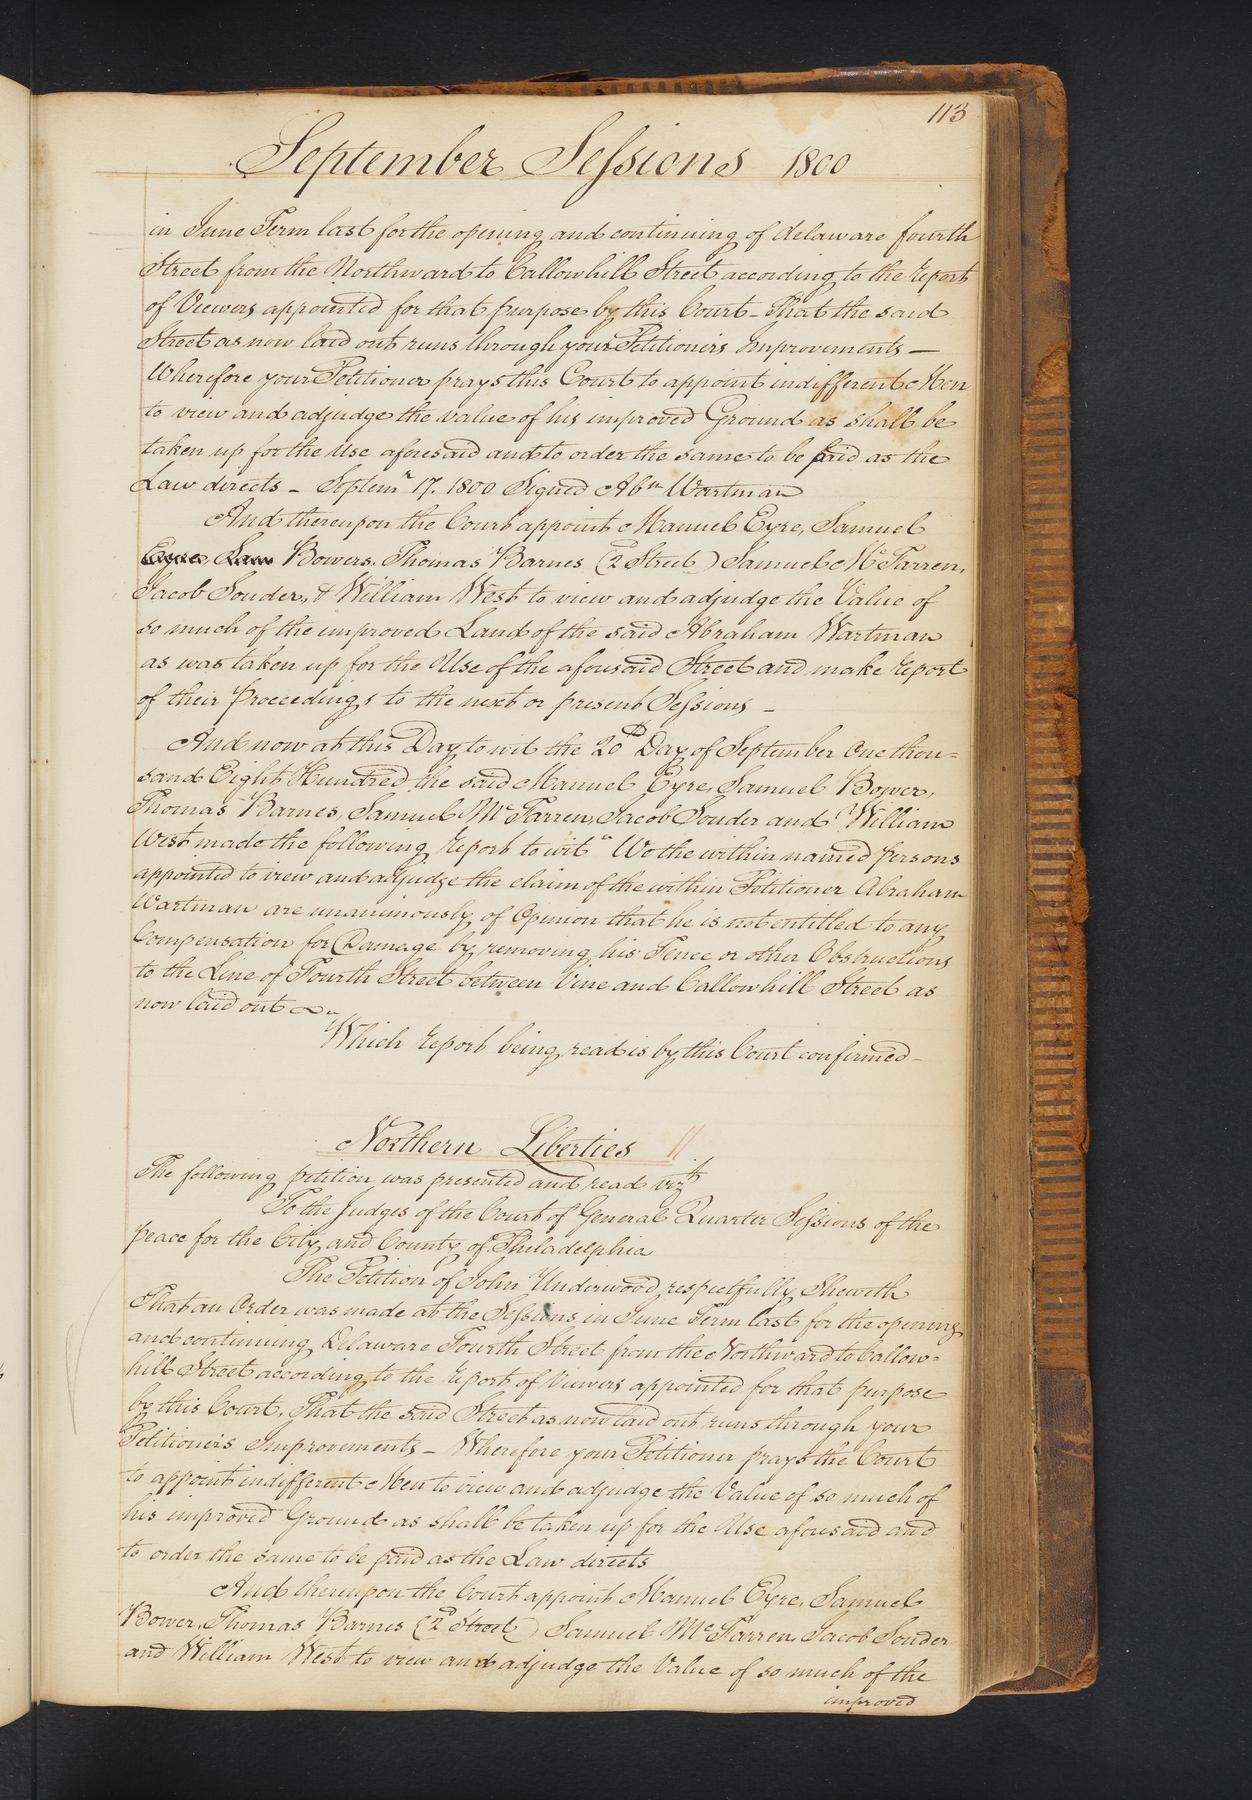 113
September Sessions 1800
in June Term last for the opening and continuing of delaware fourth
Street from the Northward to Callowhill Street according to the report
of Viewers appointed for that purpose by this Court - That the said
Street as now laid out runs through your Petitioners Improvements —
Wherefore your Petitioner prays this Court to appoint indifferent Men
to view and adjudge the value of his improved Ground as shall be
taken up for the Use aforesaid and to order the same to be paid as the
Law directs - Septemr 17. 1800 Signed Abm Wartman
And thereupon the Court appoint Manuel Eyre, Samuel
Bowers, Thomas Barnes (2d Street) Samuel McFarren,
Jacob Souder, & William West to view and adjudge the Value of
so much of the improved Land of the said Abraham Wartman
as was taken up for the Use of the aforesaid Street and make report
of their proceedings to the next or present Sessions -
And now at this Day to wit the 20th Day of September One thou=
sand Eight Hundred the said Manuel Eyre, Samuel Bower,
Thomas Barnes, Samuel McFarren, Jacob Souder and William
West made the following report to wit "We the within named persons
appointed to view and adjudge the claim of the within Petitioner Abraham
Wartman are unanimously of Opinion that he is not entitled to any
Compensation for Damage by removing his Fence or other Obstructions
to the Line of Fourth Street between Vine and Callowhill Street as
now laid out
Which report being read is by this Court confirmed -
Northern Liberties
The following petition was presented and read vizt
To the Judges of the Court of General Quarter Sessions of the
peace for the City and County of Philadelphia
The Petition of John Underwood respectfully Sheweth
That an Order was made at the Sessions in June Term last for the opening
and continuing Delaware Fourth Street from the Northward to Callow=
hill Street according to the report of Viewers appointed for that purpose
by this Court, That the said Street as now laid out runs through your
Petitioners Improvements - Wherefore your Petitioner prays the Court
to appoint indifferent Men to view and adjudge the Value of so much of
his improved Ground as shall be taken up for the Use aforesaid and
to order the same to be paid as the Law directs
And thereupon the Court appoint Manuel Eyre, Samuel
Bower, Thomas Barnes (2d Street) Samuel McFarren, Jacob Souder
and William West to view and adjudge the Value of so much of the
improved